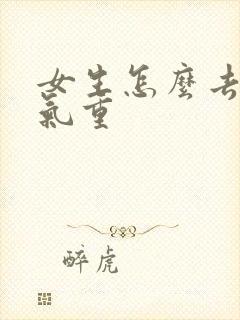 女生怎麼去
氣重
醉虎